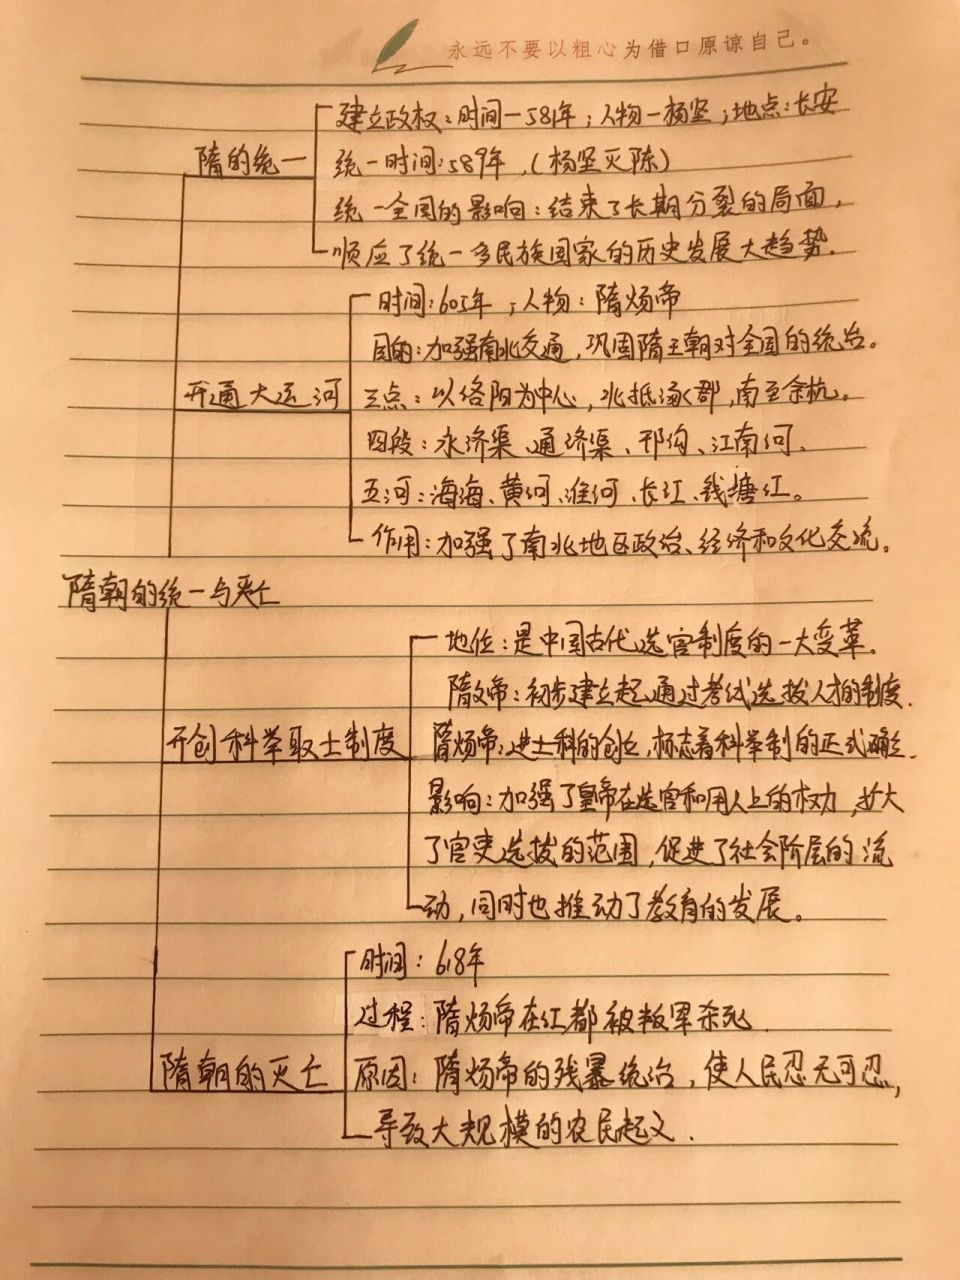 永远不要以粗心为借口原谅自己。
建立政权：时间—581年；人物—杨坚；地点：长安
隋的统一
统一时间：589年，（杨坚灭陈）
统一全国的影响：结束了长期分裂的局面，
顺应了统一多民族国家的历史发展大趋势．
时间：605年；人物：隋炀帝
目的：加强南北交通，巩固隋王朝对全国的统治。
开通大运河
三点：以洛阳为中心，北抵涿郡，南至余杭。
四段：永济渠、通济渠、邗沟、江南河．
五河：海海、黄河、淮河、长江、钱塘江。
作用：加强了南北地区政治、经济和文化交流。
隋朝的统一与灭亡
地位：是中国古代选官制度的一大变革．
隋文帝：初步建立起通过考试选拔人才的制度．
开创科举取士制度
隋炀帝：进士科的创立，标志着科举制的正式确立．
影响：加强了皇帝在选官和用人上的权力，扩大
了官吏选拔的范围，促进了社会阶层的流
动，同时也推动了教育的发展。
时间：618年
过程：隋炀帝在江都被叛军杀死．
隋朝的灭亡
原因：隋炀帝的残暴统治，使人民忍无可忍，
导致大规模的农民起义．